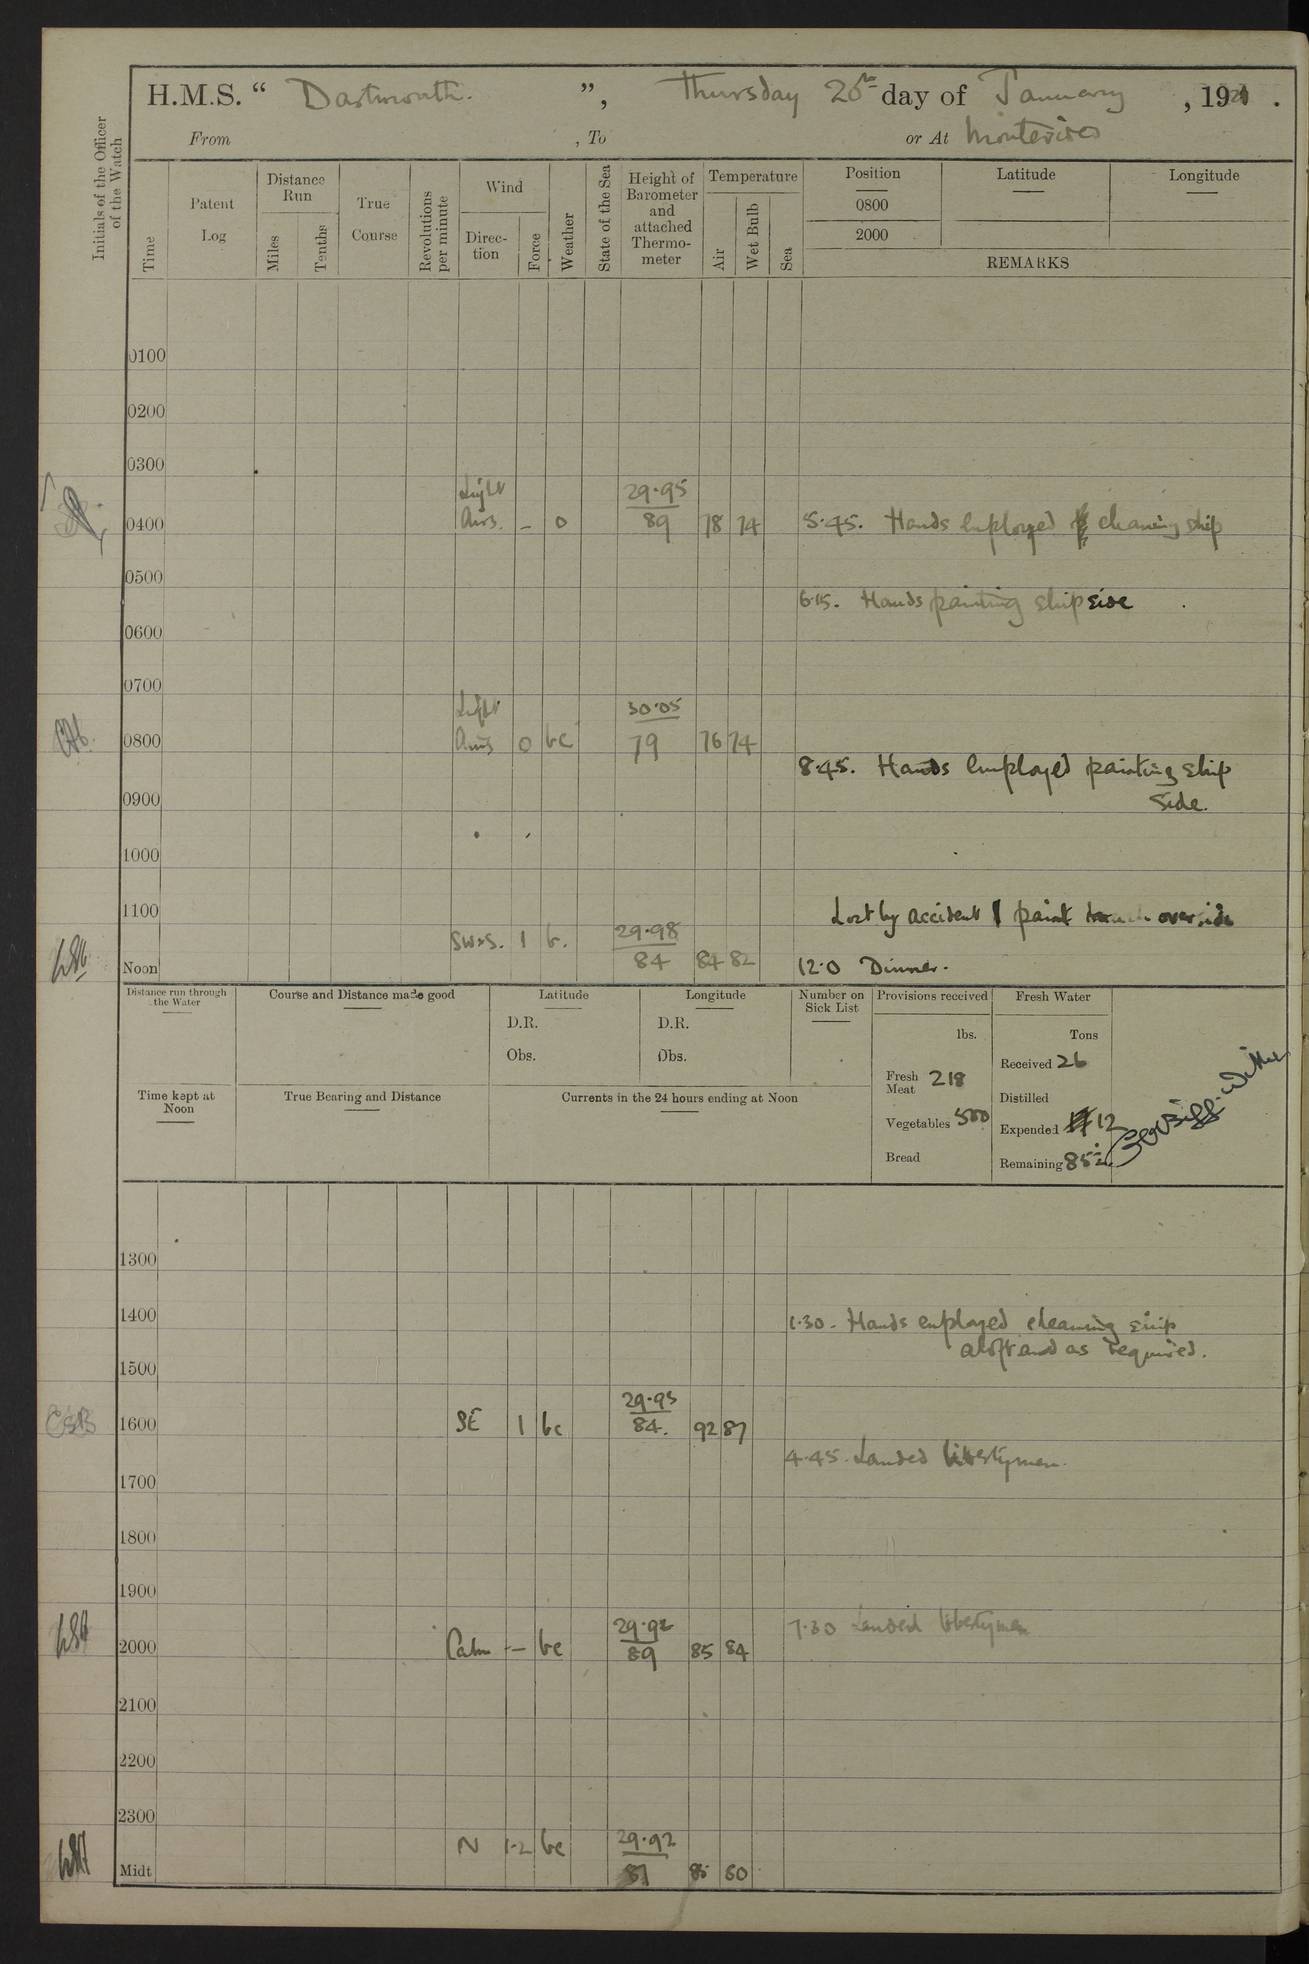 H.M.S. “ Dartmouth. ”, Thursday 20th day of January , 1921 .
From , To or At Montevideo
Initials of the Officer of the Watch
Time
Patent Log
Distance Run
Miles
Tenths
True Course
Revolutions per minute
Wind
Direc-tion
Force
Weather
State of the Sea
Height of Barometer and attached Thermo-meter
Temperature
Air
Wet Bulb
Sea
Position
0800
2000
Latitude
Longitude
REMARKS
0100
0200
0300
Light 29.95
0400 Airs. – o 89 78 74 5.45. Hands employed cleaning ship
0500
6.15. Hands painting ship side
0600
0700
Light 30.05
0800 Airs 0 bc 79 76 74
8.45. Hands employed painting ship
side.
0900
1000
1100 Lost by accident 1 paint over side
SWxS. 1 b. 29.98
Noon 84 84 82 12.0 Dinner.
Distance run through the Water
Course and Distance made good
Latitude
D.R.
Obs.
Longitude
D.R.
Obs.
Number on Sick List
Provisions received
lbs.
Fresh Meat 218
Vegetables 500
Bread
Fresh Water
Tons
Received 26
Distilled
Expended 12
Remaining 852
Time kept at Noon
True Bearing and Distance
Currents in the 24 hours ending at Noon
1300
1400 1.30. Hands employed cleaning ship
aloft and as required.
1500
29.93
1600 SE 1 bc 84. 92 87
CSB
4.45. Landed libertymen.
1700
1800
1900
29.92 7.30 Landed libertymen
2000 Calm – bc 89 85 84
2100
2200
2300
N 1-2 bc 29.92
Midt 81 80